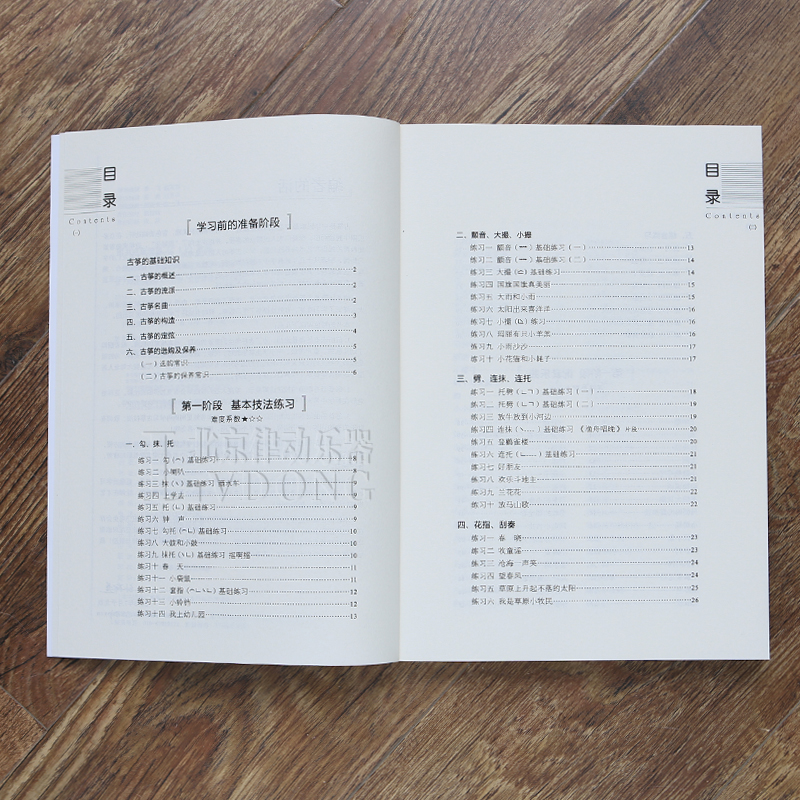 目
录
Contents
(一)
[ 学习前的准备阶段 ]
古筝的基础知识
一、古筝的概述 2
二、古筝的流派 2
三、古筝名曲 3
四、古筝的构造 3
五、古筝的定弦 4
六、古筝的选购及保养 5
(一)选购常识 5
(二)古筝的保养常识 6
[ 第一阶段 基本技法练习 ]
难度系数★☆☆
一、勾、抹、托
练习一 勾(⌒)基础练习 8
练习二 小喇叭 9
练习三 抹(丶)基础练习 洒水车 9
练习四 上学去 9
练习五 托(∟)基础练习 9
练习六 钟 声 9
练习七 勾托(⌒∟)基础练习 10
练习八 大鼓和小鼓 10
练习九 抹托(丶∟)基础练习 摇啊摇 10
练习十 春 天 11
练习十一 小袋鼠 11
练习十二 套指(⌒∟丶∟)基础练习 12
练习十三 小铃铛 12
练习十四 我上幼儿园 13
北京律动乐器
LVDONG
目
录
Contents
(二)
二、颤音、大撮、小撮
练习一 颤音()基础练习(一) 13
练习二 颤音()基础练习(二) 14
练习三 大撮()基础练习 14
练习四 国旗国旗真美丽 15
练习五 大雨和小雨 15
练习六 太阳出来喜洋洋 16
练习七 小撮()练习 16
练习八 玛丽有只小羊羔 16
练习九 小雨沙沙 17
练习十 小花猫和小耗子 17
三、劈、连抹、连托
练习一 托劈(∟㇆)基础练习(一) 18
练习二 托劈(∟㇆)基础练习(二) 19
练习三 放牛放到小河边 19
练习四 连抹(丶....)基础练习 《渔舟唱晚》片段 20
练习五 登鹳雀楼 20
练习六 连托(∟......)基础练习 21
练习七 好朋友 21
练习八 欢乐斗地主 21
练习九 兰花花 22
练习十 放马山歌 22
四、花指、刮奏
练习一 春 晓 23
练习二 牧童谣 23
练习三 沧海一声笑 24
练习四 望春风 24
练习五 草原上升起不落的太阳 25
练习六 我是草原小牧民 26